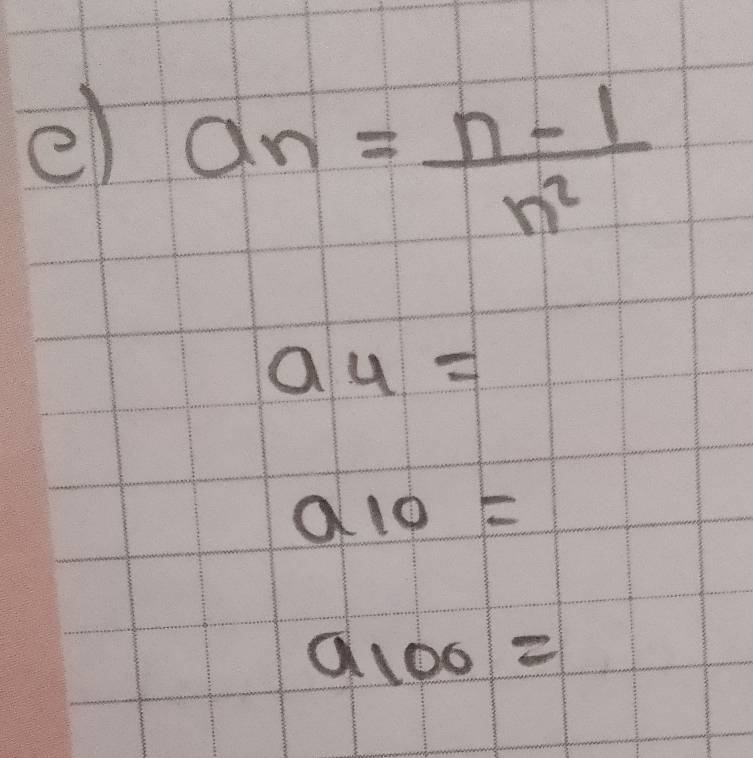 e) an = n - 1 / n²
a4 =
a10 =
a100 =